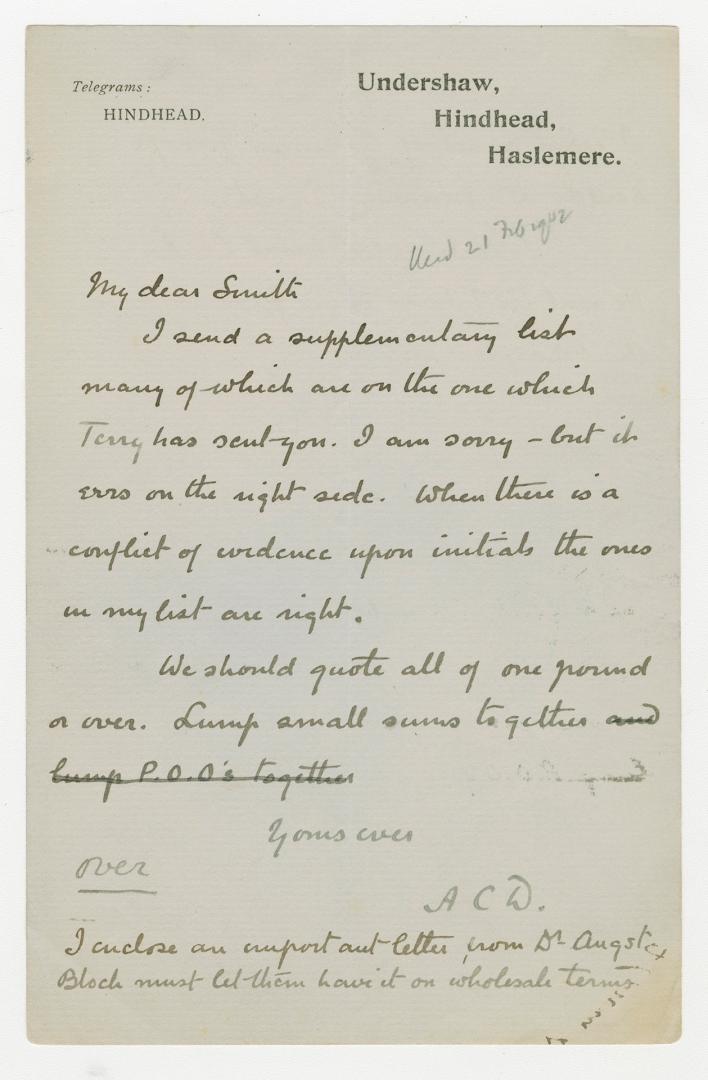 Telegrams:
HINDHEAD.
Undershaw,
Hindhead,
Haslemere.
21 Feb 1902
My dear Smith
I send a supplementary list
many of which are on the one which
Terry has sent you. I am sorry - but it
errs on the right side. When there is a
conflict of evidence upon initials the ones
in my list are right.
We should quote all of one pound
or over. Lump small sums together and
lump P.O.O's together
Yours ever
over
A C D.
I enclose an important letter from Dr Augst
Bloch must let them have it on wholesale terms